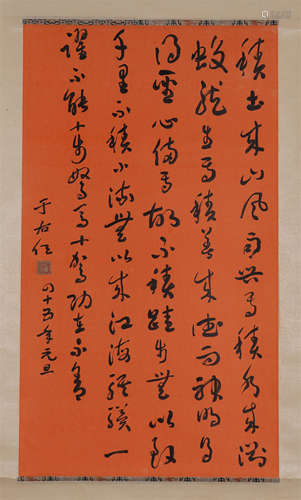 積土成山風雨興焉積水成淵
蛟龍生焉積善成德而神明自
得聖心備焉故不積跬步無以致
千里不積小流無以成江海騏驥一
躍不能十步駑馬十駕功在不舍
于右任
四十五年元旦